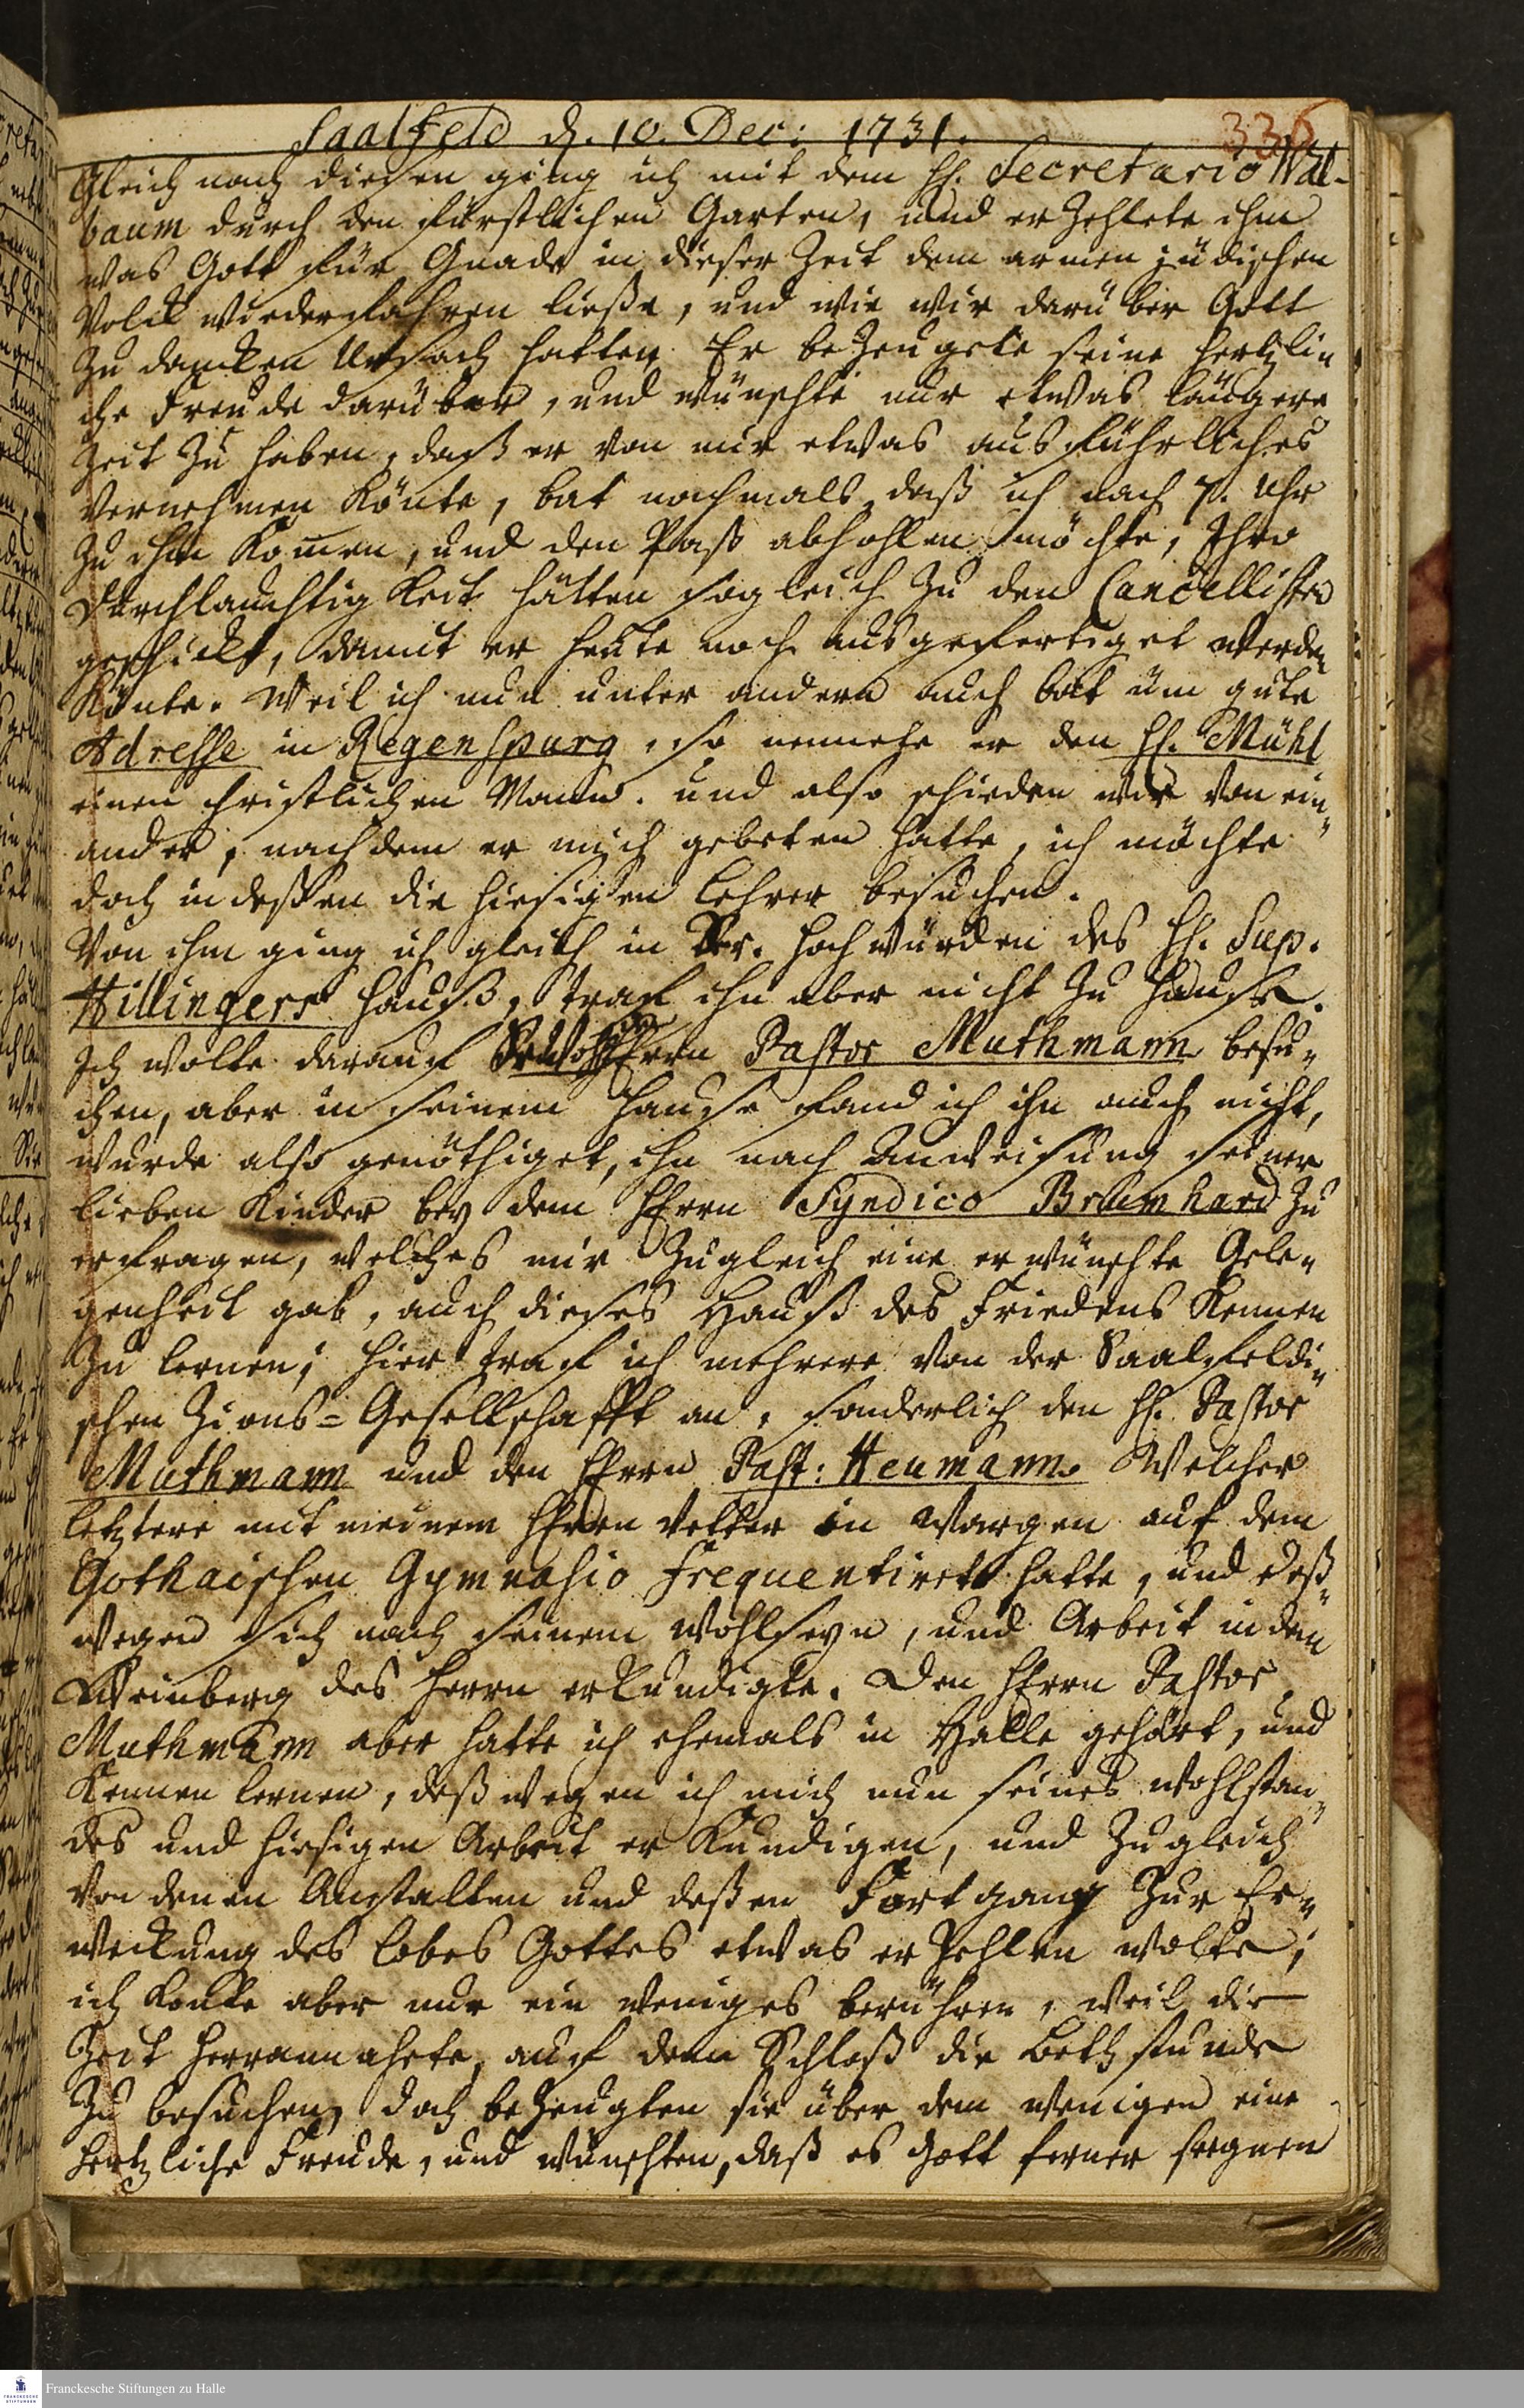 Saalfeld d. 10. Dec: 1731.
336
Gleich nach diesen ging ich mit dem H. Secretario Wal-
baum durch den Fürstlichen Garten, und erzehlete ihm
was Gott für Gnade in dieser Zeit dem armen jüdischen
Volck wiederfahren ließe, und wie wir darüber Gott
zu dancken Ursach hatten. Er bezeugete seine hertzli-
che Freude darüber, und wünschte nur etwas längere
Zeit zu haben, daß er von mir etwas ausführliches
vernehmen könte, bat nochmals, daß ich nach 7. Uhr
zu ihm kommen, und den Paß abhohlen möchte, Ihro
Durchlauchtigkeit hätten sogleich zu den Cancellisten
geschickt, damit er heute noch ausgefertiget werden
könte. Weil ich nun unter andern auch bat üm gute
Adresse in Regenspurg, so nennete er den H. Mühl
einen christlichen Mann. und also schieden wir von ein-
ander, nachdem er mich gebeten hatte, ich möchte
doch indeßen die hiesigen Lehrer besuchen.
Von ihm ging ich gleich in Sr. Hochwürden des H. Sup.
Hillingers Hauß, traf ihn aber nicht zu Hause.
Ich wolte darauf Herrn Pastor Muthmann besu-
chen, aber in seinem Hause fand ich ihn auch nicht,
wurde also genöthiget, ihn nach Anweisung seiner
lieben Kinder bey dem Herrn Syndico Brumhard zu
erfragen, welches mir zugleich eine erwünschte Gele-
genheit gab, auch dieses Hauß des Friedens kennen
zu lernen; hier traf ich mehrere von der Saalfeldi-
schen Zions-Gesellschafft an, sonderlich den H. Pastor
Muthmann und den Herrn Past: Heumann. Welcher
letztere mit meinem Herrn Vetter in Wargen auf dem
Gothaischen Gymnasio frequentiret hatte, und deß-
wegen sich nach seinem Wohlseyn, und Arbeit in den
Weinberg des Herrn erkundigte. Den Herrn Pastor
Muthmann aber hatte ich ehemals in Halle gehört, und
kennen lernen, deßwegen ich mich nun seines Wohlstan-
des und hiesigen Arbeit erkundigen, und zugleich
von denen Anstalten und deßen Fortgang zur Er-
weckung des Lobes Gottes etwas erzehlen wolte;
ich konte aber nur ein weniges berühren, weil die
Zeit herrannahete, auf dem Schloß die Bethstunde
zu besuchen, doch bezeugten sie über dem wenigen eine
hertzliche Freude, und wünschten, daß es Gott ferner seegnen
Franckesche Stiftungen zu Halle